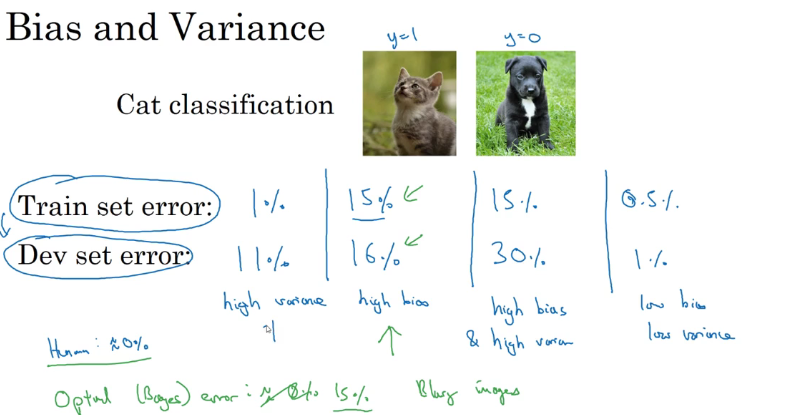 Bias and Variance
y=1 y=0
Cat classification
Train set error: 1% 15% 15% 0.5%
Dev set error: 11% 16% 30% 1%
high variance high bias high bias low bias
& high varian low variance
Human: ≈0%
Optul (Bayes) error: ≈0% 15% Blury images